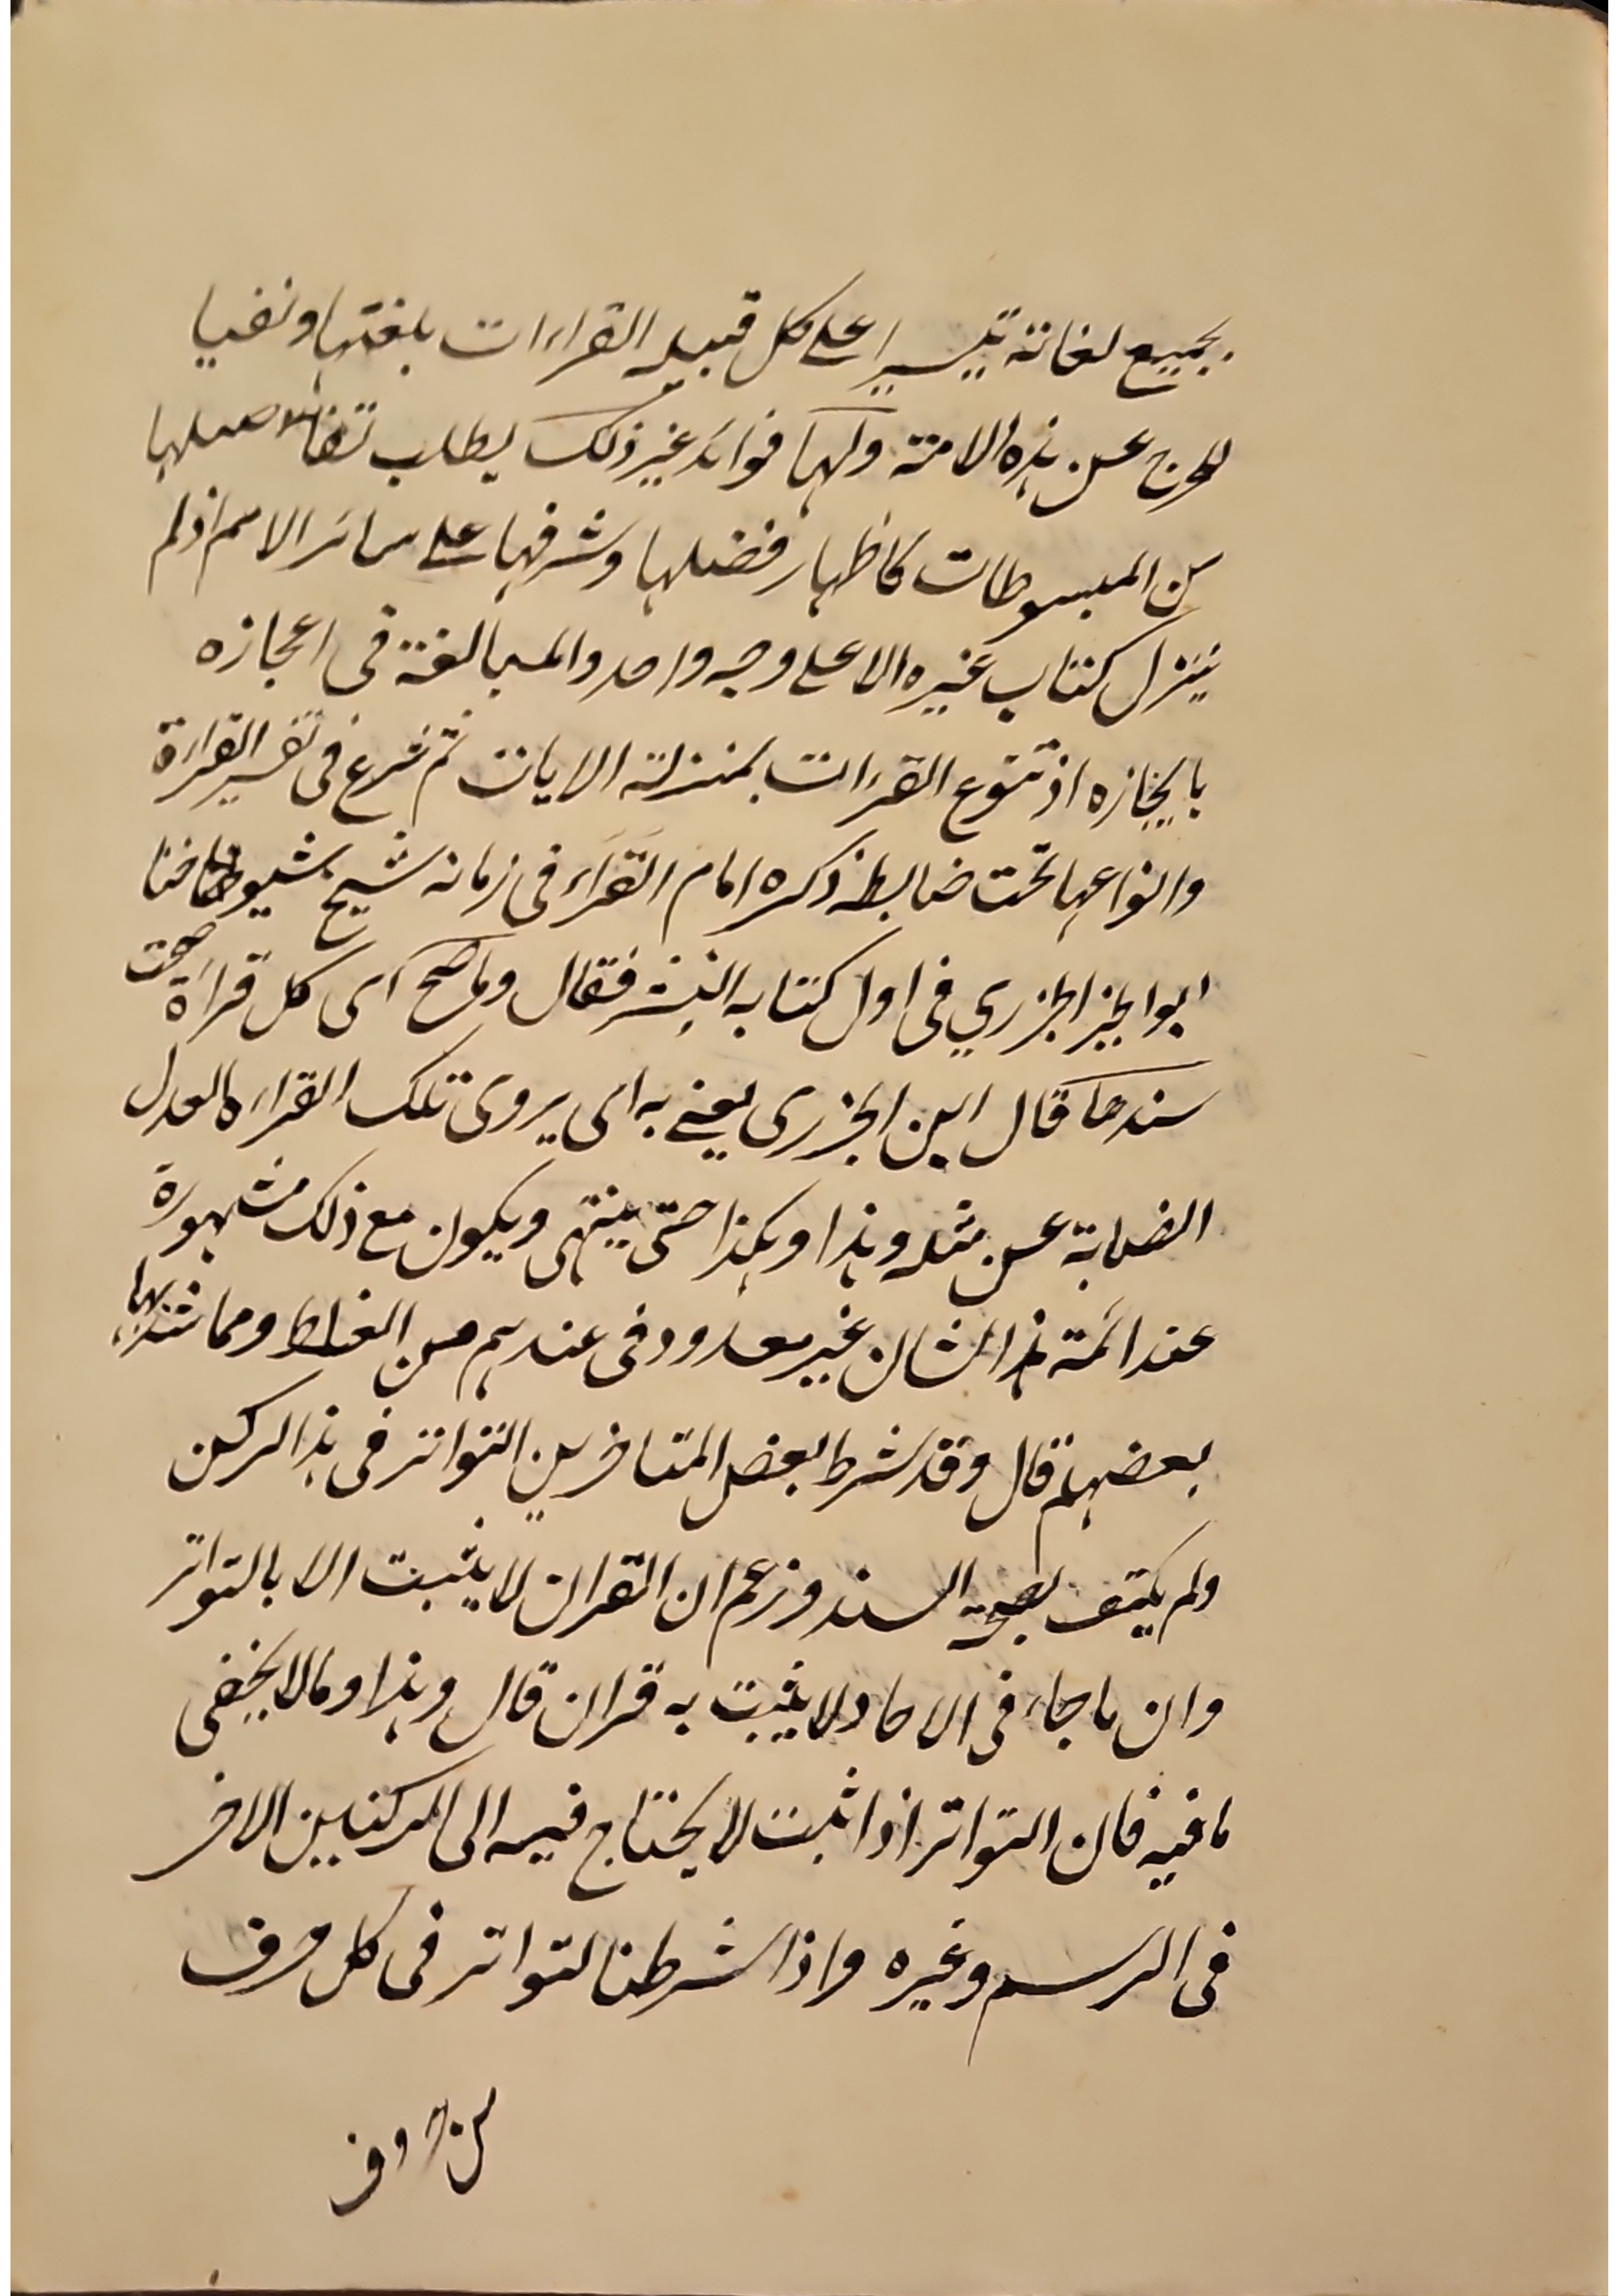 بجميع لغاته تيسيرا على كل قبيلة القراات بلغتها ونفيا
للحرج عن هذه الامة ولها فوائد غير ذلك يطلب تفاصيلها
من المبسوطات كاظهار فضلها وشرفها على سائر الامم اذ لم
ينزل كتاب غيره الا على وجه واحد والمبالغة في اعجازه
بايجازه اذ تنوع القرات بمنزلة الايات ثم شرع في تفسير القراءة
وانواعها تحت ضابط ذكره امام القراء في زمانه شيخ شيوخنا
ابو الخير الجزري في اول كتابه النشر فقال وما صح اى كل قراءة صحت
سندها قال ابن الجزرى يعنى به اى يروى تلك القراءة العدل
الضابة عن مثله وهذا وهكذا حتى ينتهى ويكون مع ذلك مشهورة
عند ائمة هذا الشان غير معدود فى عندهم من الغلط ومما شذ بها
بعضهم قال وقد شرط بعض المتاخرين التواتر فى هذا الركن
ولم يكتف بصحة السند وزعم ان القران لا يثبت الا بالتواتر
وان ما جاء فى الاحاد لا يثبت به قران قال وهذا ومالا يخفى
ما فيه فان التواتر اذا ثبت لا يحتاج فيه الى الركنين الاخر
فى الرسم وغيره واذا شرطنا لتواتر فى كل حرف
من حروف